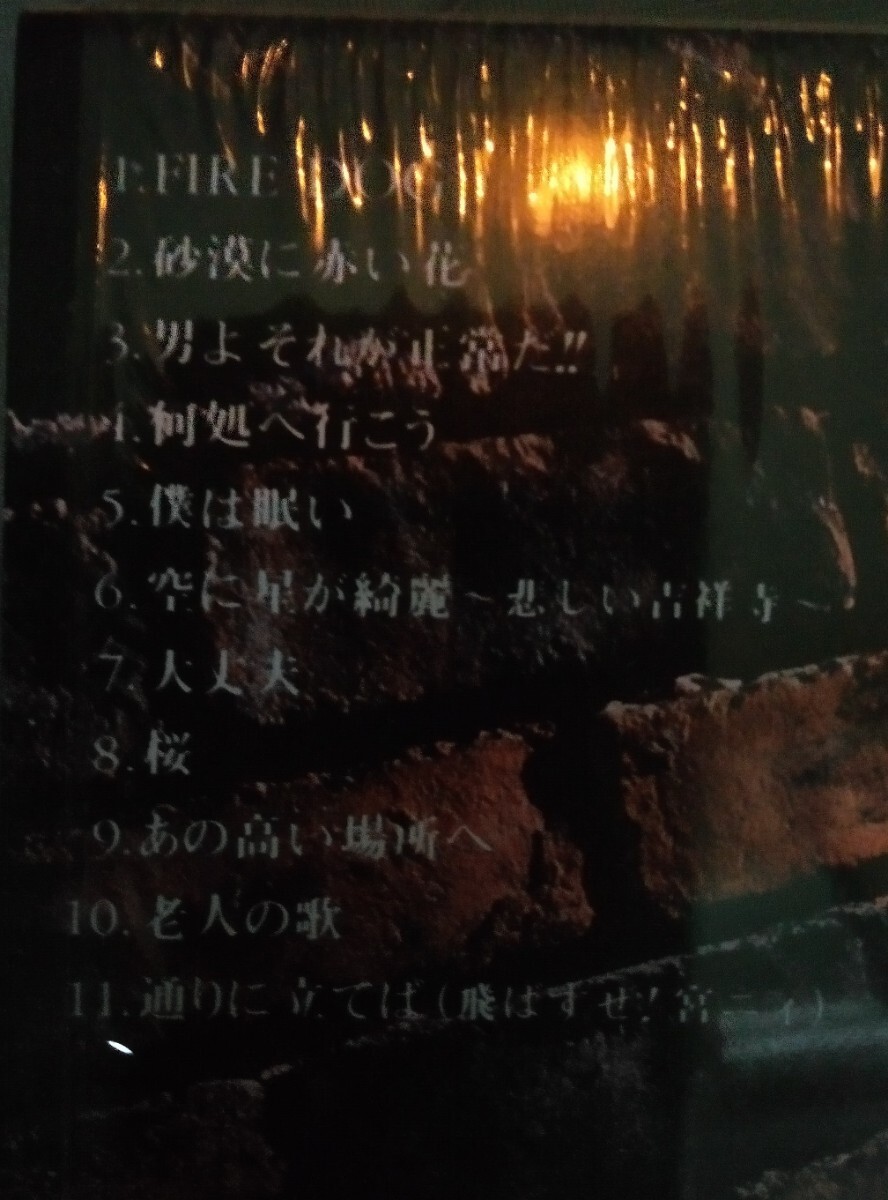 1. FIRE DOG
2. 砂漠に赤い花
3. 男よそれが正常だ!!
4. 何処へ行こう
5. 僕は眠い
6. 空に星が綺麗~悲しい吉祥寺~
7. 大丈夫
8. 桜
9. あの高い場所へ
10. 老人の歌
11. 通りに立てば(飛ばすぜ!宮ニィ)